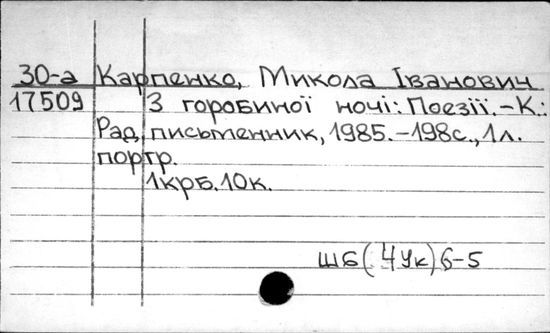 30-а Карпенко, Микола Іванович
17509 З горобиної ночі: Поезії.-К.:
Рад. письменник, 1985.-198с., 1л.
портр.
1крб.10к.
Шб(4Ук)6-5